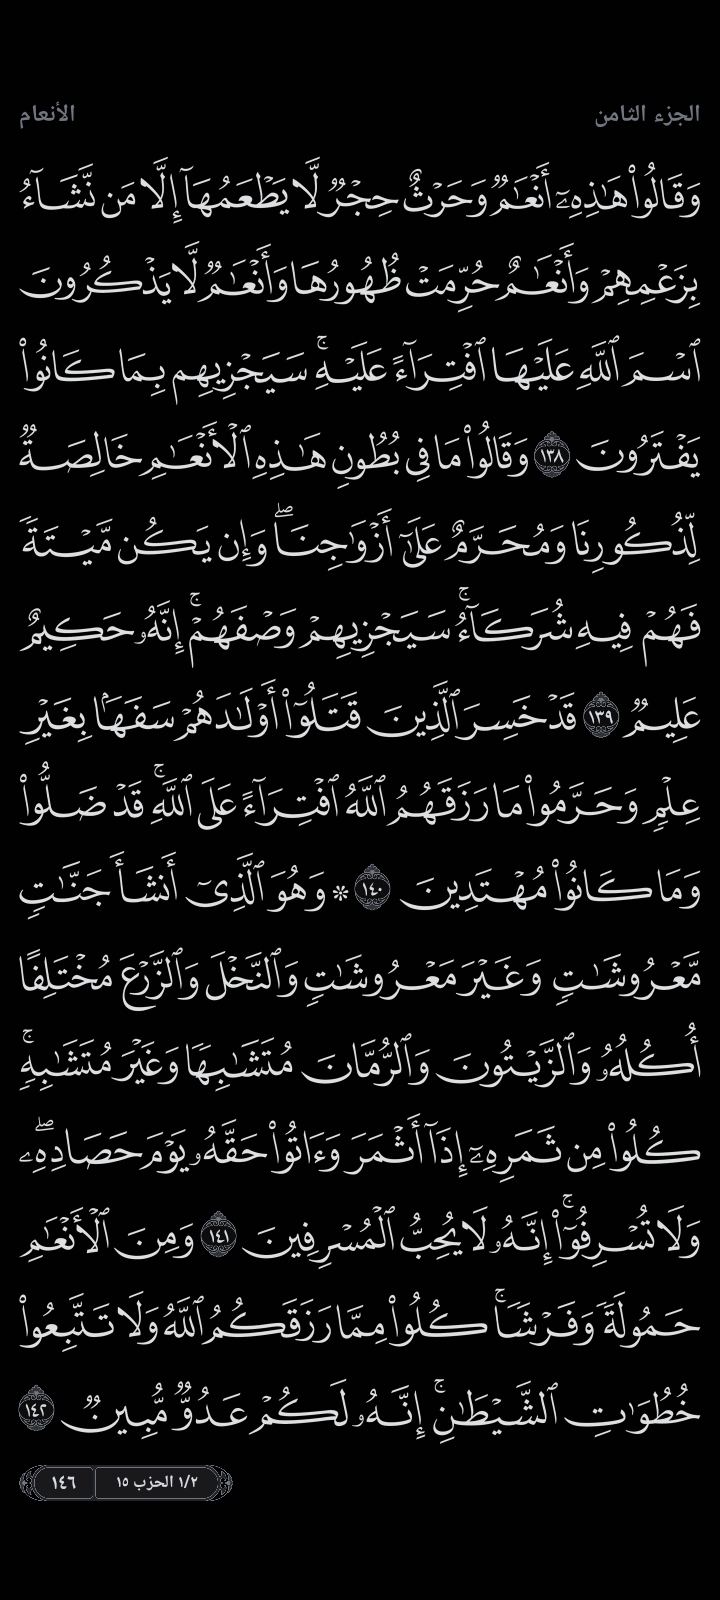 الجزء الثامن
الأنعام
وَقَالُوا۟ هَـٰذِهِۦٓ أَنْعَـٰمٌ وَحَرْثٌ حِجْرٌ لَّا يَطْعَمُهَآ إِلَّا مَن نَّشَآءُ
بِزَعْمِهِمْ وَأَنْعَـٰمٌ حُرِّمَتْ ظُهُورُهَا وَأَنْعَـٰمٌ لَّا يَذْكُرُونَ
ٱسْمَ ٱللَّهِ عَلَيْهَا ٱفْتِرَآءً عَلَيْهِ ۚ سَيَجْزِيهِم بِمَا كَانُوا۟
يَفْتَرُونَ ١٣٨ وَقَالُوا۟ مَا فِى بُطُونِ هَـٰذِهِ ٱلْأَنْعَـٰمِ خَالِصَةٌ
لِّذُكُورِنَا وَمُحَرَّمٌ عَلَىٰٓ أَزْوَٰجِنَا ۖ وَإِن يَكُن مَّيْتَةً
فَهُمْ فِيهِ شُرَكَآءُ ۚ سَيَجْزِيهِمْ وَصْفَهُمْ ۚ إِنَّهُۥ حَكِيمٌ
عَلِيمٌ ١٣٩ قَدْ خَسِرَ ٱلَّذِينَ قَتَلُوٓا۟ أَوْلَـٰدَهُمْ سَفَهًۢا بِغَيْرِ
عِلْمٍ وَحَرَّمُوا۟ مَا رَزَقَهُمُ ٱللَّهُ ٱفْتِرَآءً عَلَى ٱللَّهِ ۚ قَدْ ضَلُّوا۟
وَمَا كَانُوا۟ مُهْتَدِينَ ١٤٠ * وَهُوَ ٱلَّذِىٓ أَنشَأَ جَنَّـٰتٍ
مَّعْرُوشَـٰتٍ وَغَيْرَ مَعْرُوشَـٰتٍ وَٱلنَّخْلَ وَٱلزَّرْعَ مُخْتَلِفًا
أُكُلُهُۥ وَٱلزَّيْتُونَ وَٱلرُّمَّانَ مُتَشَـٰبِهًا وَغَيْرَ مُتَشَـٰبِهٍ ۚ
كُلُوا۟ مِن ثَمَرِهِۦٓ إِذَآ أَثْمَرَ وَءَاتُوا۟ حَقَّهُۥ يَوْمَ حَصَادِهِۦ ۖ
وَلَا تُسْرِفُوٓا۟ ۚ إِنَّهُۥ لَا يُحِبُّ ٱلْمُسْرِفِينَ ١٤١ وَمِنَ ٱلْأَنْعَـٰمِ
حَمُولَةً وَفَرْشًا ۚ كُلُوا۟ مِمَّا رَزَقَكُمُ ٱللَّهُ وَلَا تَتَّبِعُوا۟
خُطُوَٰتِ ٱلشَّيْطَـٰنِ ۚ إِنَّهُۥ لَكُمْ عَدُوٌّ مُّبِينٌ ١٤٢
١/٢ الحزب ١٥
١٤٦